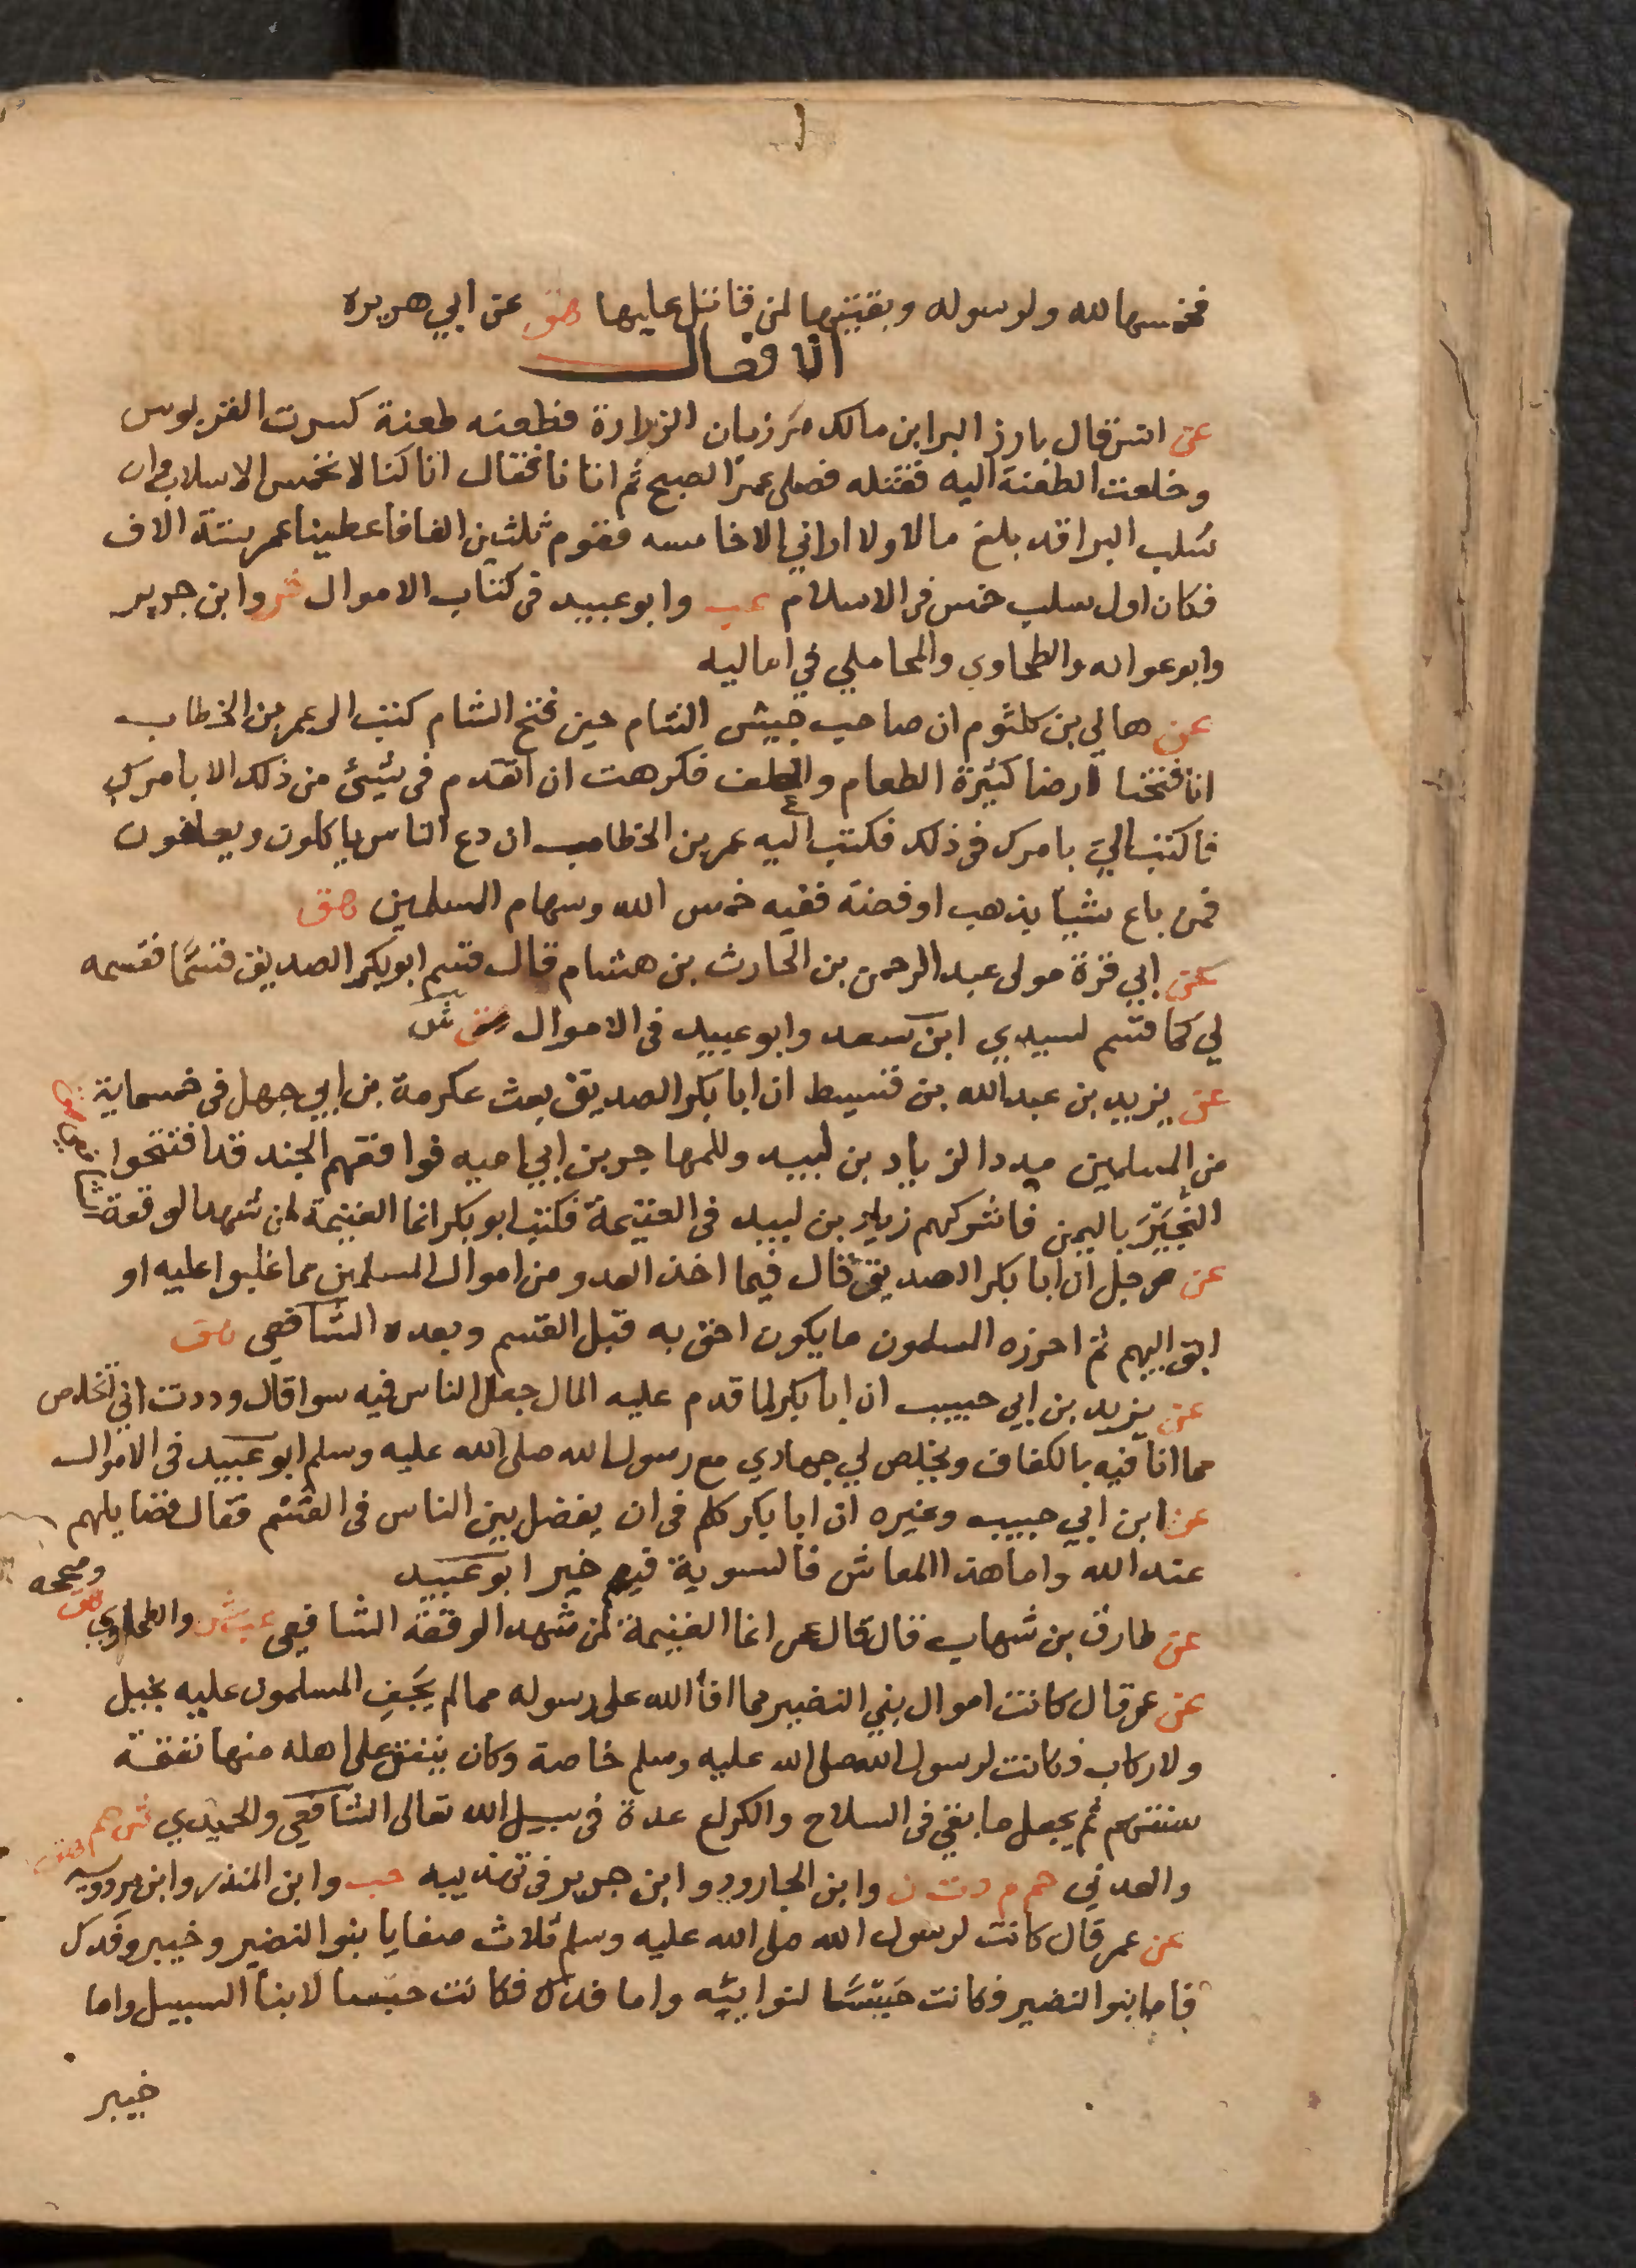 فخمسها لله ولرسوله وبقيتها لمن قاتل عليها هق عن ابي هريره
الافعال
عن انس قال بارز البرا بن مالك مرزبان الزرارة فطعنه طعنة كسرت القربوس
وخلعت الطعنة اليه فقتله فصلى عمر الصبح ثم اتانا فقال انا كنا لا نخمس الاسلاب وان
سلب البرا قد بلغ مالا ولا اراني الا خامسه فقوم ثلثين الفا فاعطينا عمر ستة الاف
فكان اول سلب خمس في الاسلام عب وابو عبيد في كتاب الاموال ش وابن جرير
وابو عوانه والطحاوي والمحاملي في اماليه
عن هاني بن كلثوم ان صاحب جيش الشام حين فتح الشام كتب الى عمر بن الخطاب
انا فتحنا ارضا كثيرة الطعام والعلف فكرهت ان اتقدم في شيئ من ذلك الا بامرك
فاكتب الي بامرك في ذلك فكتب اليه عمر بن الخطاب ان دع الناس ياكلون ويعلفون
فمن باع شيا بذهب او فضة ففيه خمس الله وسهام المسلمين هق
عن ابي قرة مولى عبد الرحمن بن الحارث بن هشام قال قسم ابو بكر الصديق قسما فقسمه
لي كما قسم لسيدي ابن سعد وابو عبيد في الاموال ش
عن يزيد بن عبد الله بن قسيط ان ابا بكر الصديق بعث عكرمة بن ابي جهل في خمسماية
من المسلمين مددا لزياد بن لبيد وللمهاجر بن ابي اميه فوافقهم الجند قد افتتحوا
النجير باليمن فاشركهم زياد بن لبيد في الغنيمة فكتب ابو بكر انما الغنيمة لمن شهد الوقعة
عن رجل ان ابا بكر الصديق قال فيما اخذ العدو من اموال المسلمين مما غلبوا عليه او
ابق اليهم ثم احرزه المسلمون مايكون احق به قبل القسم وبعده الشافعي هق
عن يزيد بن ابي حبيب ان ابا بكر لما قدم عليه المال جعل الناس فيه سوا قال وددت اني اتخلص
مما انا فيه بالكفاف ويخلص لي جهادي مع رسول الله صلى الله عليه وسلم ابو عبيد في الاموال
عن ابن ابي حبيب وغيره ان ابا بكر كلم في ان يفضل بين الناس في القسم فقال فضايلهم
عند الله واما هذا المعاش فالسوية فيه خير ابو عبيد
عن طارق بن شهاب قال قال عمر انما الغنيمة لمن شهد الوقعة الشافعي عب ش والطحاوي هق وصححه
عن عمر قال كانت اموال بني النضير مما افأ الله على رسوله مما لم يجف المسلمون عليه بخيل
ولا ركاب فكانت لرسول الله صلى الله عليه وسلم خاصة وكان ينفق على اهله منها نفقة
سنتهم ثم يجعل ما بقي في السلاح والكراع عدة في سبيل الله تعالى الشافعي والحميدي ش حم
والعدني حم م د ت ن وابن الجارود وابن جرير في تهذيبه حب وابن المنذر وابن مردويه هق
عن عمر قال كانت لرسول الله صلى الله عليه وسلم ثلاث صفايا بنو النضير وخيبر وفدك
فاما بنو النضير فكانت حبسا لنوايبه واما فدك فكانت حبسا لابنا السبيل واما
خيبر